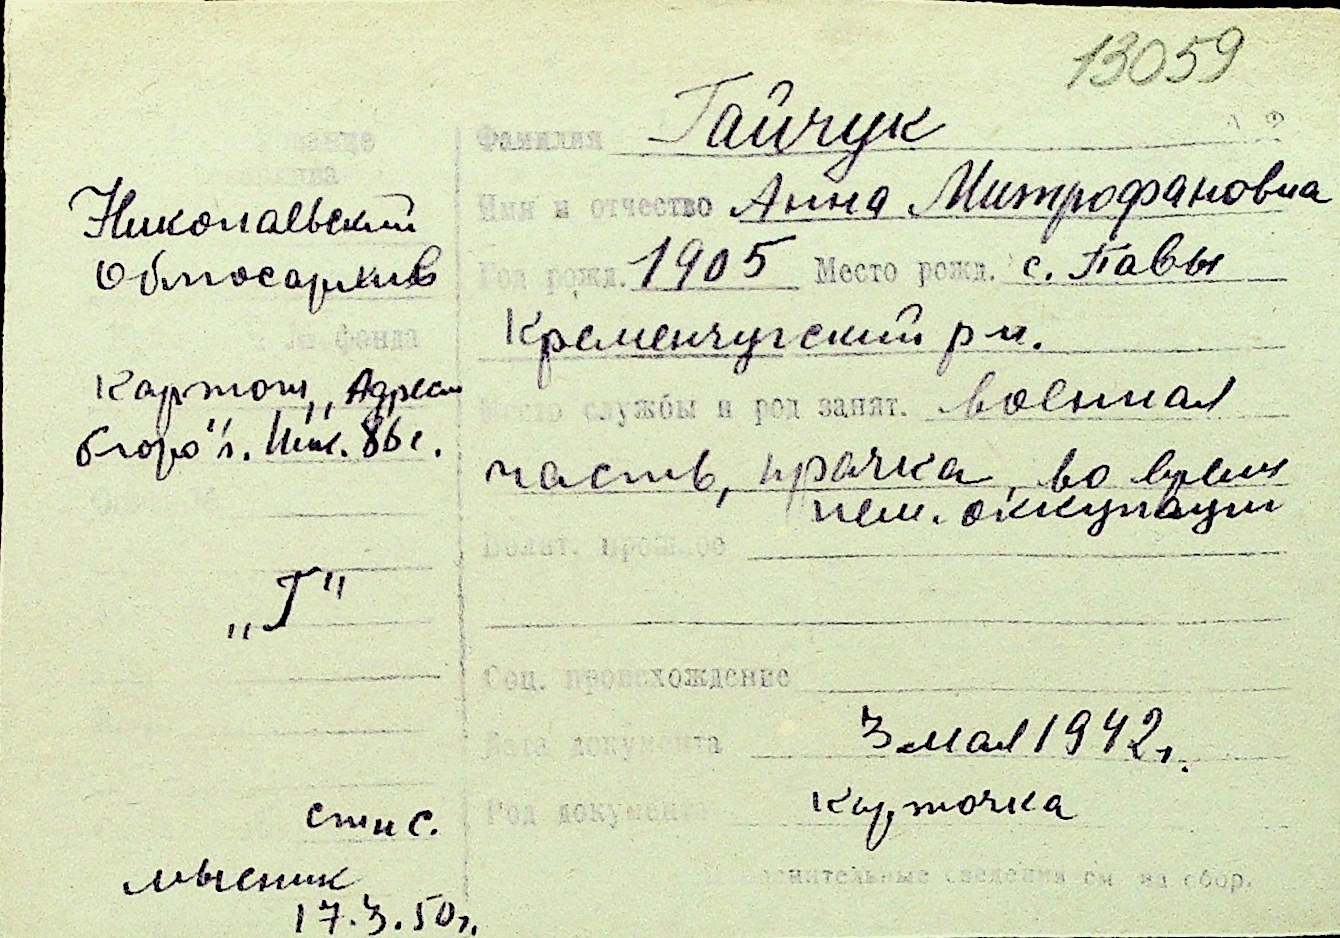 13059
Фамилия Гайчук
Имя и отчество Анна Митрофановна
Год рожд. 1905 Место рожд. с. Павы
Кременчугский р-н.
Место службы и род занят. военная
часть, прачка, во время
нем. оккупации
Полит. прошлое
Соц. происхождение
Дата документа 3 мая 1942 г.
Род документа Карточка
сведения см на обор.
Николаевский
Облгосархив
№ фонда
Картот. „Адресн
бюро" г. Ник.
„Г"
17.3.50 г.